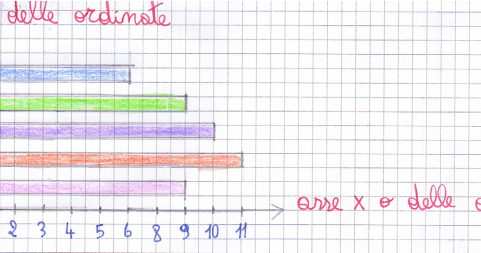 delle ordinate
asse x o delle
2 3 4 5 6 8 9 10 11